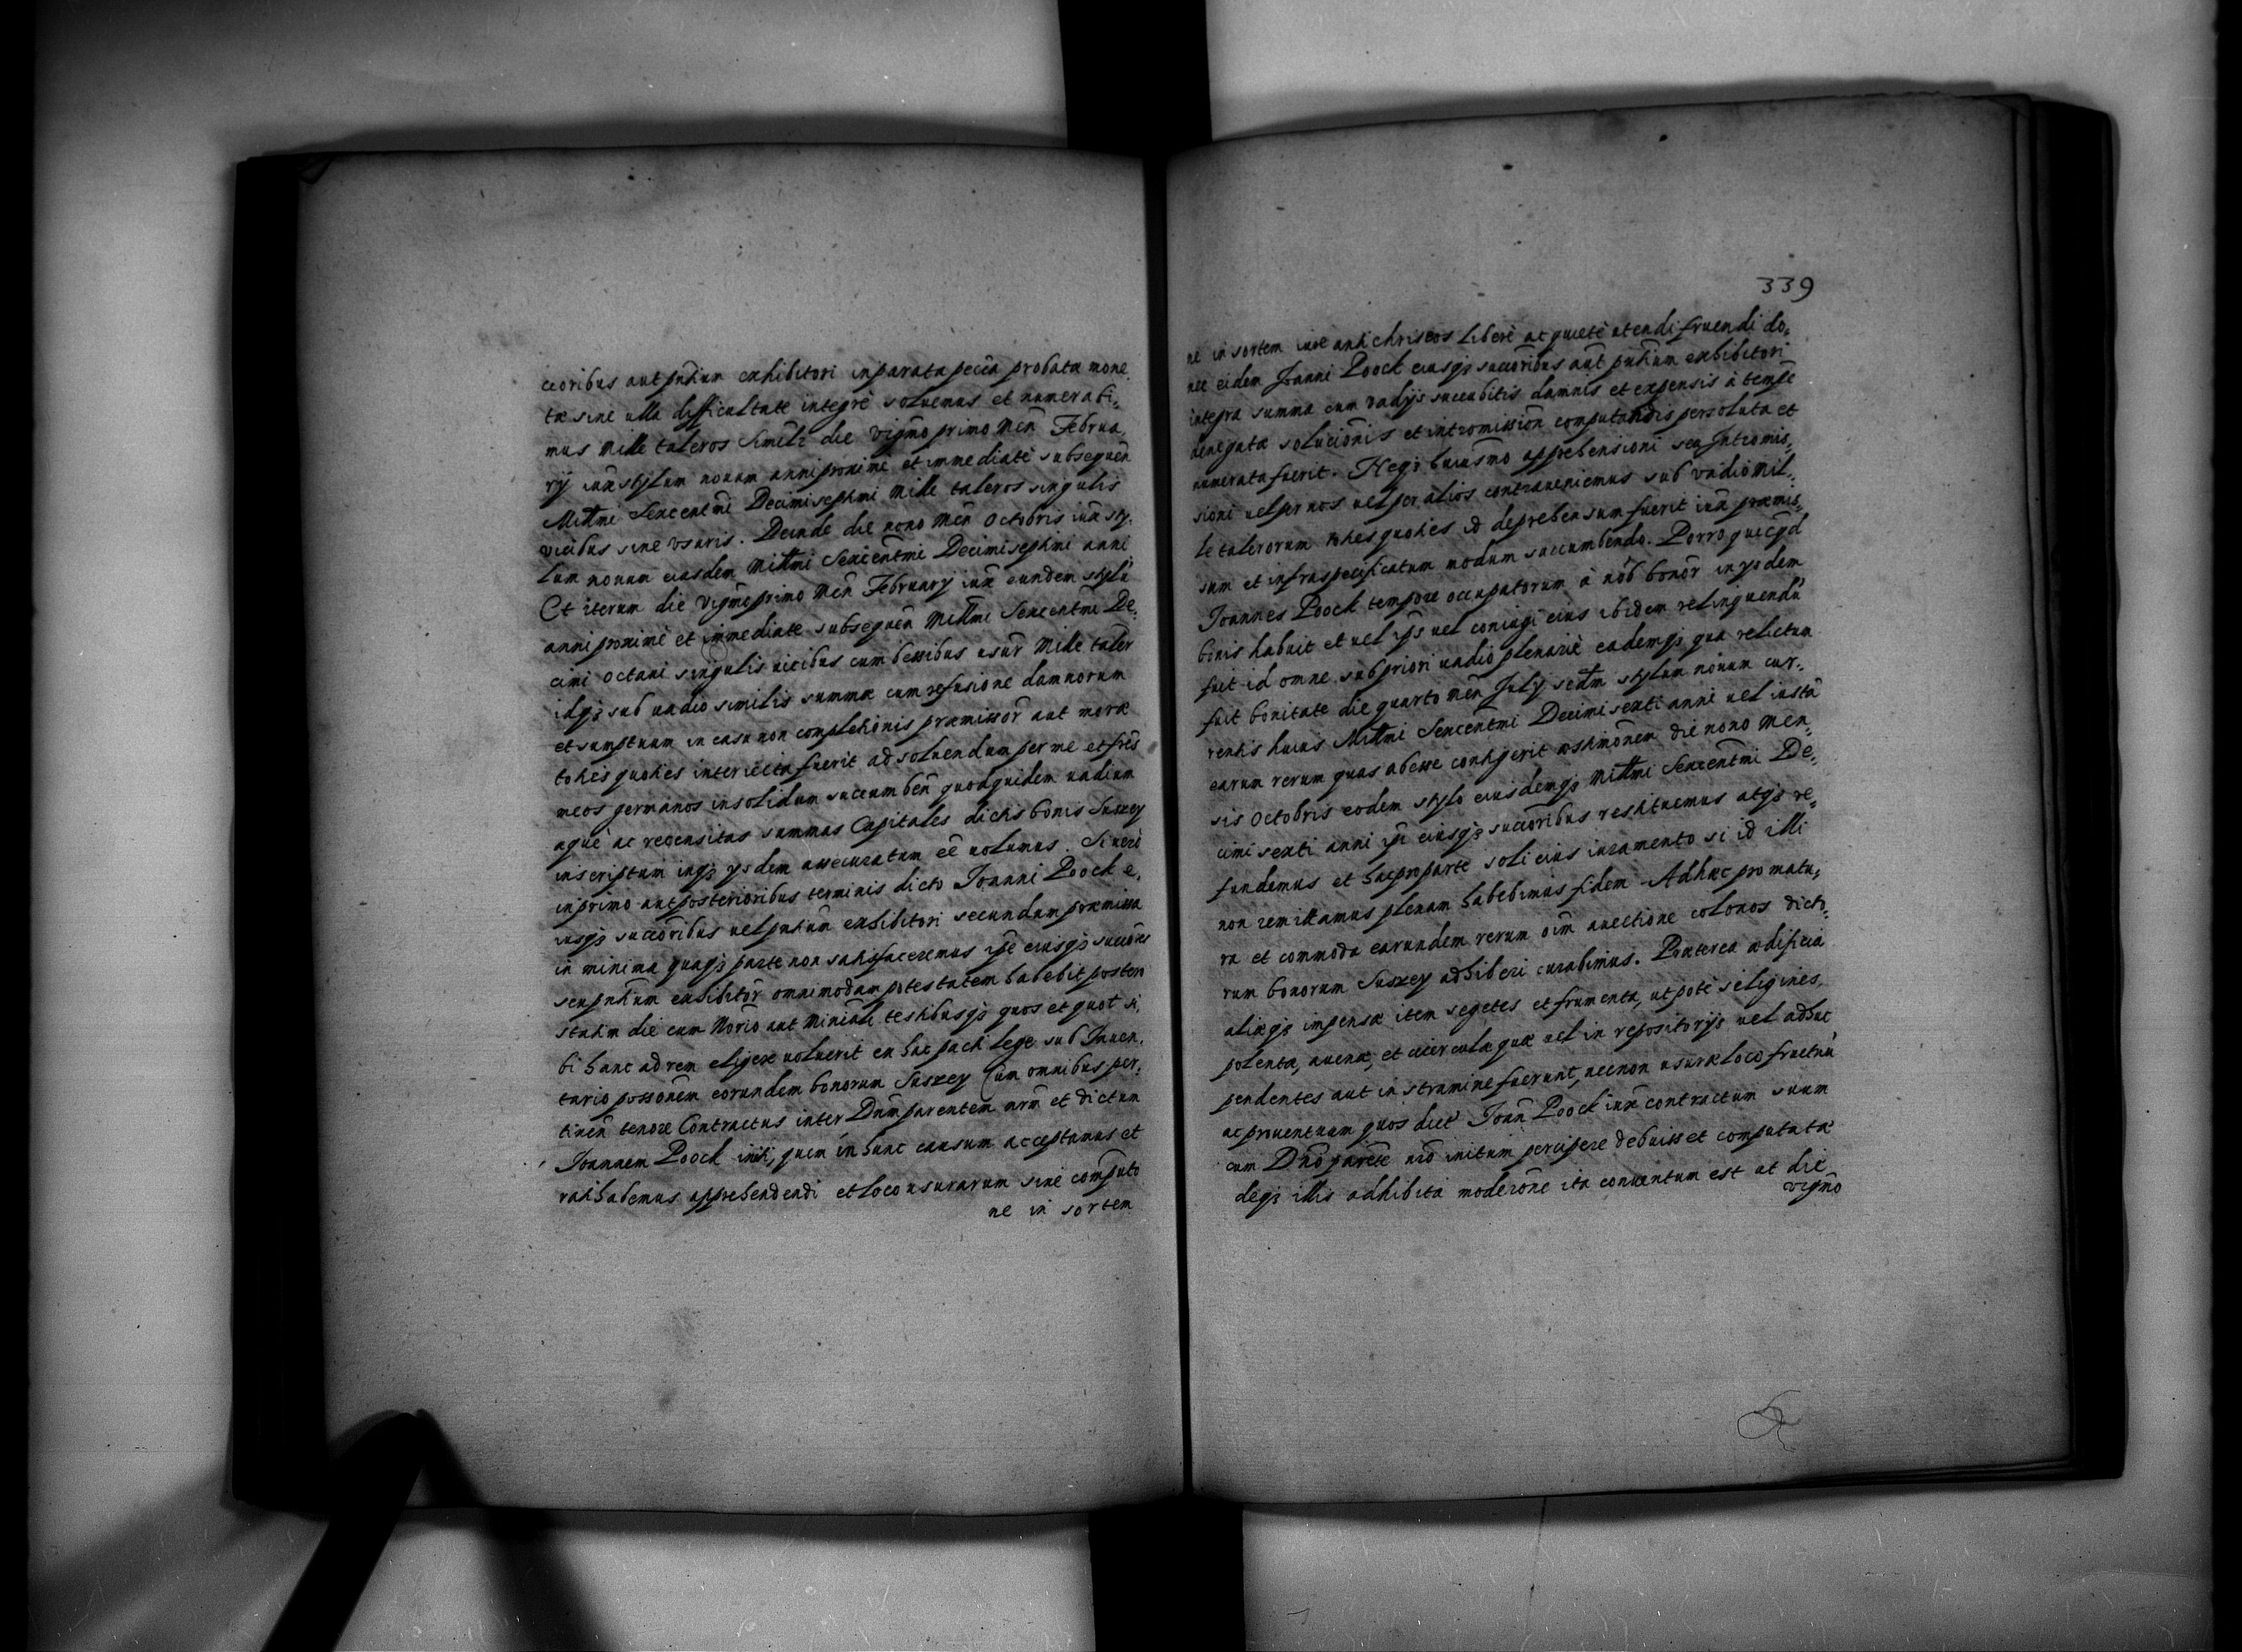 cioribus aut pntium exhibitori in parata pecīa probatæ mone,
tæ sine ulla difficultate integrè soluemus et numerabi,
mus Mille taleros Simili die Vigmo primo Men Februa,
rij iux stylum nouum anni proxime et immediatè subsequen
Millmi Sexcentmi Decimiseptimi Mille taleros singulis
vicibus sine vsuris. Deinde die nono Men Octobris iux sty,
lum nouum eiusdem Millmi Sexcentmi Decimiseptimi anni
Et iterum die Vigmoprimo Men February iux eundem stylū
anni proximè et immediate subsequen Millmi Sexcentmi De,
cimi octaui singulis vicibus cum bessibus usur Mille taler
idqꝫ sub vadio similis summæ cum refusione damnorum
et sumptuum in casu non completionis præmissor aut moræ
toties quoties interiecta fuerit ad soluendum per me et fres
meos germanos insolidum succumben quodquidem vadium
æquè ac recensitas summas Capitales dictis bonis Suszey
inscriptum inqꝫ ysdem assecuratum eē uolumus. Si uerò
in primo aut posterioribus terminis dicto Joanni Poock e,
iusqꝫ succoribus uel pntium exhibitori secundum præmissa
in minima quaqꝫ parte non satisfaceremus ipe eiusqꝫ succores
seu pntium exhibitor omnimodam potestatem habebit posteri
statim die cum Norio aut Miniali testibusqꝫ quos et quot si,
bi hanc ad rem eligere uoluerit ex hac pacti lege sub Inuen,
tario possonem eorundem bonorum Suszey Cum omnibus per,
tinen tenore Contractus inter Dnm parentem nrm et dictum
Joannem Poock initi, quem in hunc causum acceptamus et
ratihabemus apprehendendi et loco usurarum sine computo
ne in sortem
339
ne in sortem iure antichriseos liberè ac quietè utendi fruendi do,
nec eidem Joanni Poock eiusqꝫ succoribus aut pntium exhibitori
integra summa cum vadijs succubitis damnis et expensis à tempe
denegatæ solucionis et intromission computandis persoluta et
numerata fuerit. Neqꝫ huiusmo apprehensioni seu Intromis,
sioni uel per nos uel per alios contraueniemus sub vadio Mil,
le talerorum toties quoties id deprehensum fuerit iux præmis,
sum et infraspecificatum modum succumbendo. Porro quicqd
Joannes Poock tempore occupatorum à nob bonor in ysdem
bonis habuit et uel ips uel coniugi eius ibidem relinquendū
fuit id omne sub priori uadio plenariè eademqꝫ qua relictum
fuit bonitate die quarto Men July sedm stylum nouum cur,
rentis huius Millmi Sexcentmi Decimi sexti anni uel iustā
earum rerum quas abesse contigerit æstimonem die nono Men,
sis Octobris eodem stylo eiusdemqꝫ Millmi Sexcentmi De,
cimi sexti anni ipi eiusqꝫ succoribus restituemus atqꝫ re,
fundemus et hac pro parte soli eius iuramento si id illi
non remittamus plenam habebimus fidem. Adhæc pro matu,
ra et commoda earundem rerum oim auectione colonos dicto,
rum bonorum Suszey adhiberi curabimus. Præterea ædificia
aliæqꝫ impensæ item segetes et frumenta, ut potè siligines,
polenta, auenæ, et cicerculæ quæ uel in repositorijs uel adhuc
pendentes aut in stramine fuerunt, necnon usuræ loco fructuū
ac prouentuum quos dict Joan Poock iux contractum suum
cum Dno parete nro initum percipere debuisset computatā
deqꝫ illis adhibita moderone ita conuentum est ut die
vigmo